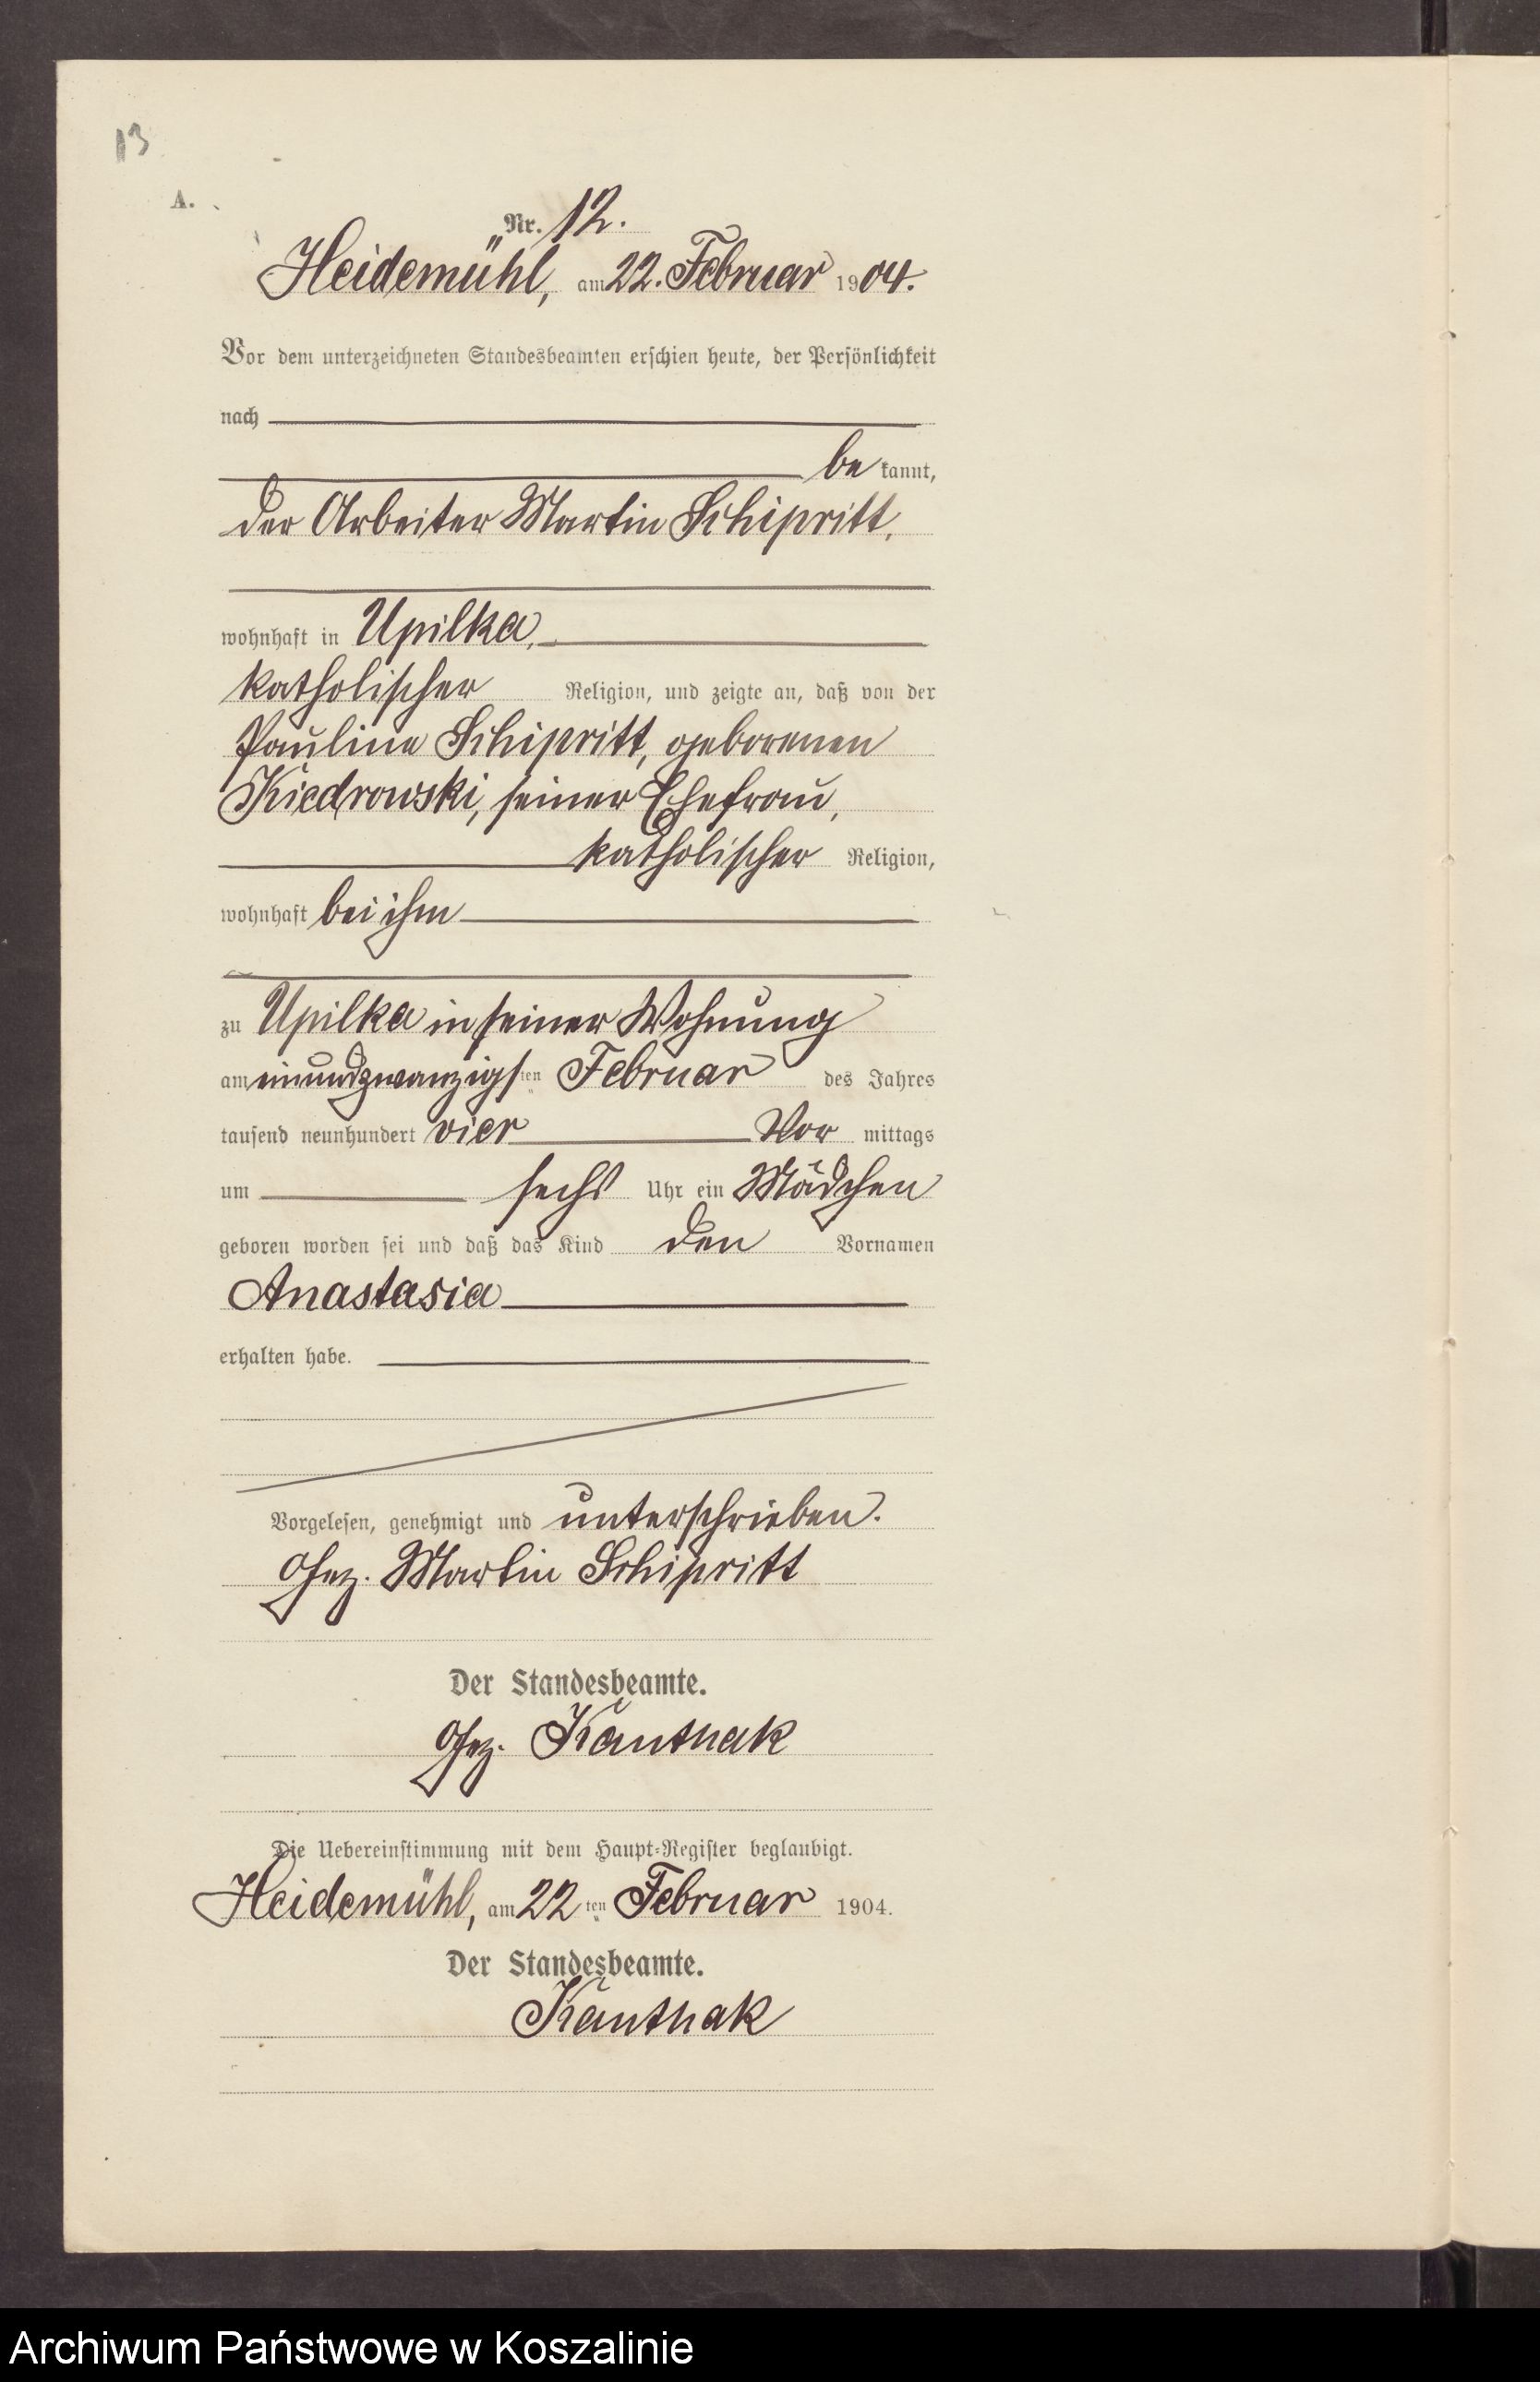 13
A.
Nr. 12.
Heidemühl, am 22. Februar 1904.
Vor dem unterzeichneten Standesbeamten erschien heute, der Persönlichkeit
nach
be kannt,
der Arbeiter Martin Schipritt,
wohnhaft in Upilka,
katholischer Religion, und zeigte an, daß von der
Pauline Schipritt, geborenen
Kiedrowski, seiner Ehefrau,
katholischer Religion,
wohnhaft bei ihm
zu Upilka in seiner Wohnung
am einundzwanzigsten Februar des Jahres
tausend neunhundert vier Vor mittags
um sechs Uhr ein Mädchen
geboren worden sei und daß das Kind den Vornamen
Anastasia
erhalten habe.
Vorgelesen, genehmigt und unterschrieben.
Gez. Martin Schipritt
Der Standesbeamte.
Gez. Kanthak
Die Uebereinstimmung mit dem Haupt-Register beglaubigt.
Heidemühl, am 22ten Februar 1904.
Der Standesbeamte.
Kanthak
Archiwum Państwowe w Koszalinie